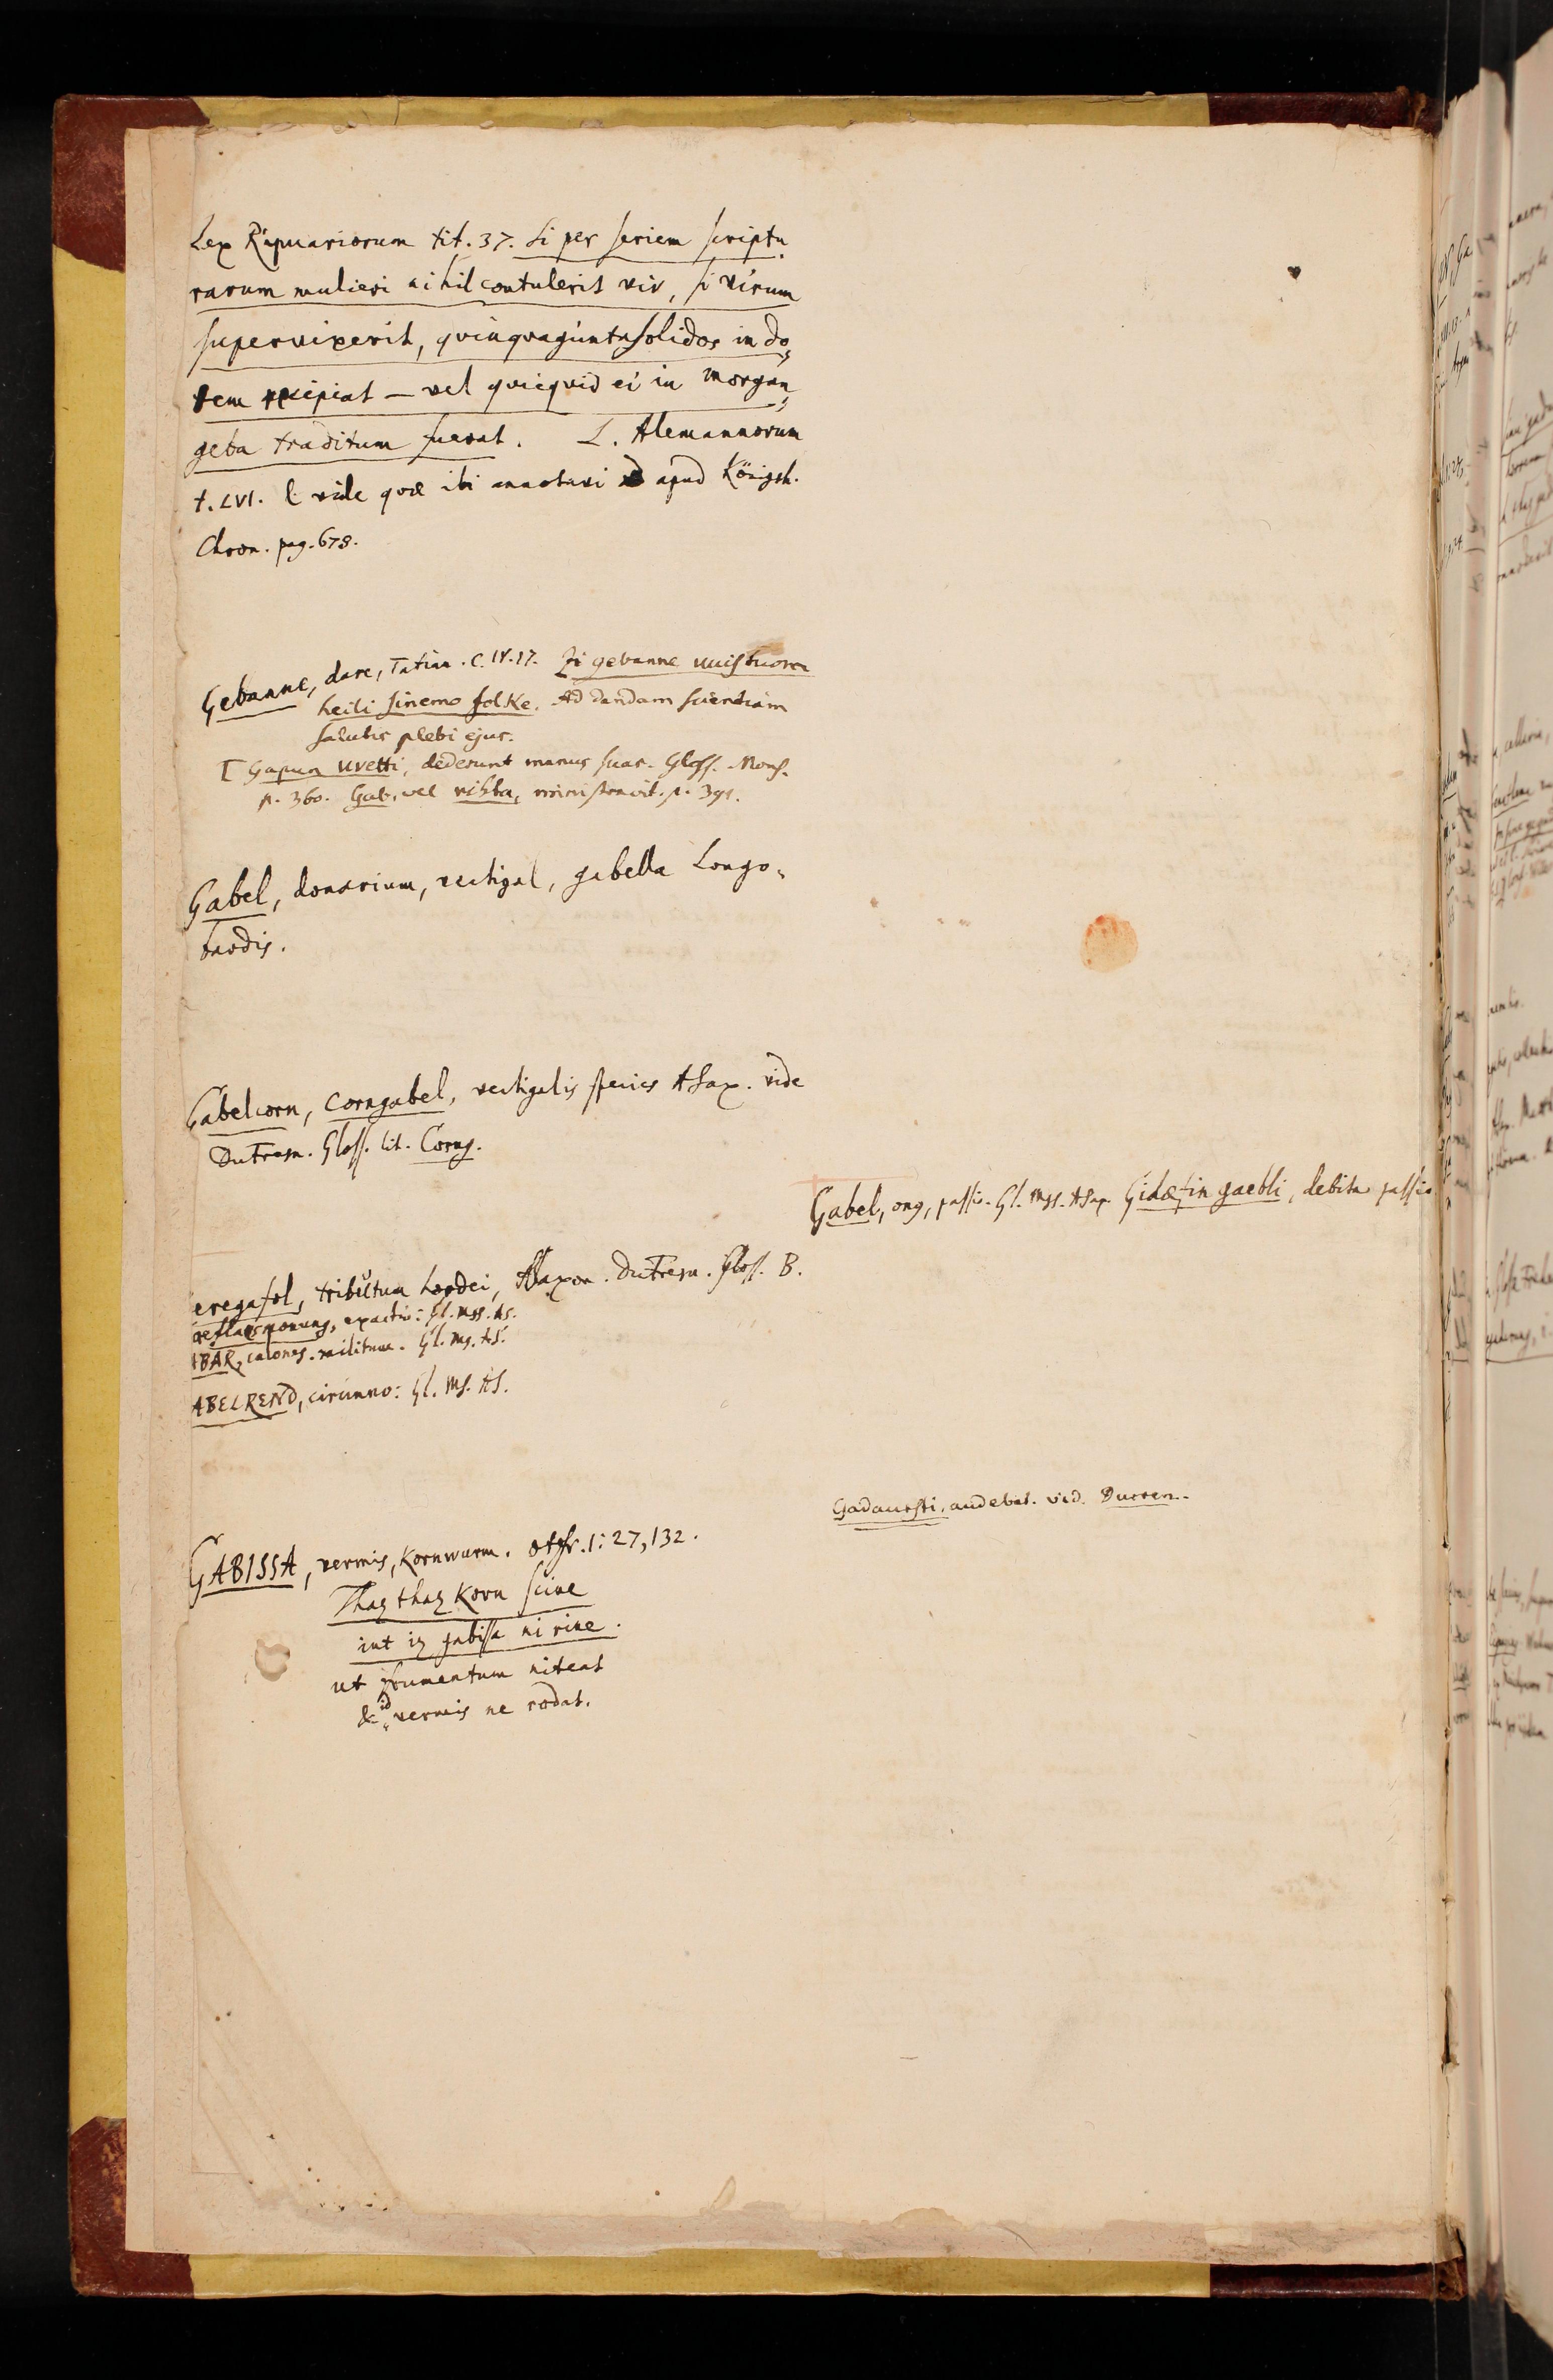 Lex Ripuariorum tit. 37. Si per seriem scriptu„
rarum mulieri nihil contulerit vir, si virum
supervixerit, qvinqvaginta solidos in do„
tem recipiat — vel qvicqvid ei in morgan„
geba traditum fuerat. L. Alemannorum
t. LVI. & vide qvæ ibi annotavi apud Königsh.
Chron. pag. 678.
Gebanne, dare, Tatian. C. IV. 17. Zi gebanne uuistuom
heili sinemo folke. Ad dandam scientiam
salutis plebi ejus.
[ Gapun uvetti, dederunt manus suas. Gloss. Mons.
p. 360. Gab, vel rihta, ministravit. p. 391.
Gabel, donarium, vectigal, gabella Longo„
bardis.
Gabelcorn, Corngabel, vectigalis species ASax. vide
DuFresn. Gloss. lit. Corng.
Gabel, ong, passio. Gl. Mss. ASax. Gidæfin gaebli, debita passio
eregafol, tributum hordei, ASaxon. DuFresn. Gloss. B.
monung, exactio: Gl. Mss. AS.
ABAR, calones. militum. Gl. Ms. AS.
ABELREND, circinno: Gl. Ms. AS.
Gadaursti, audebat. vid. Durren.
GABISSA, vermis, Kornwurm. Otfr. 1: 27, 132.
Thaz thaz Korn scine
int iz gabissa ni rine.
ut frumentum niteat
& id vermis ne rodat.